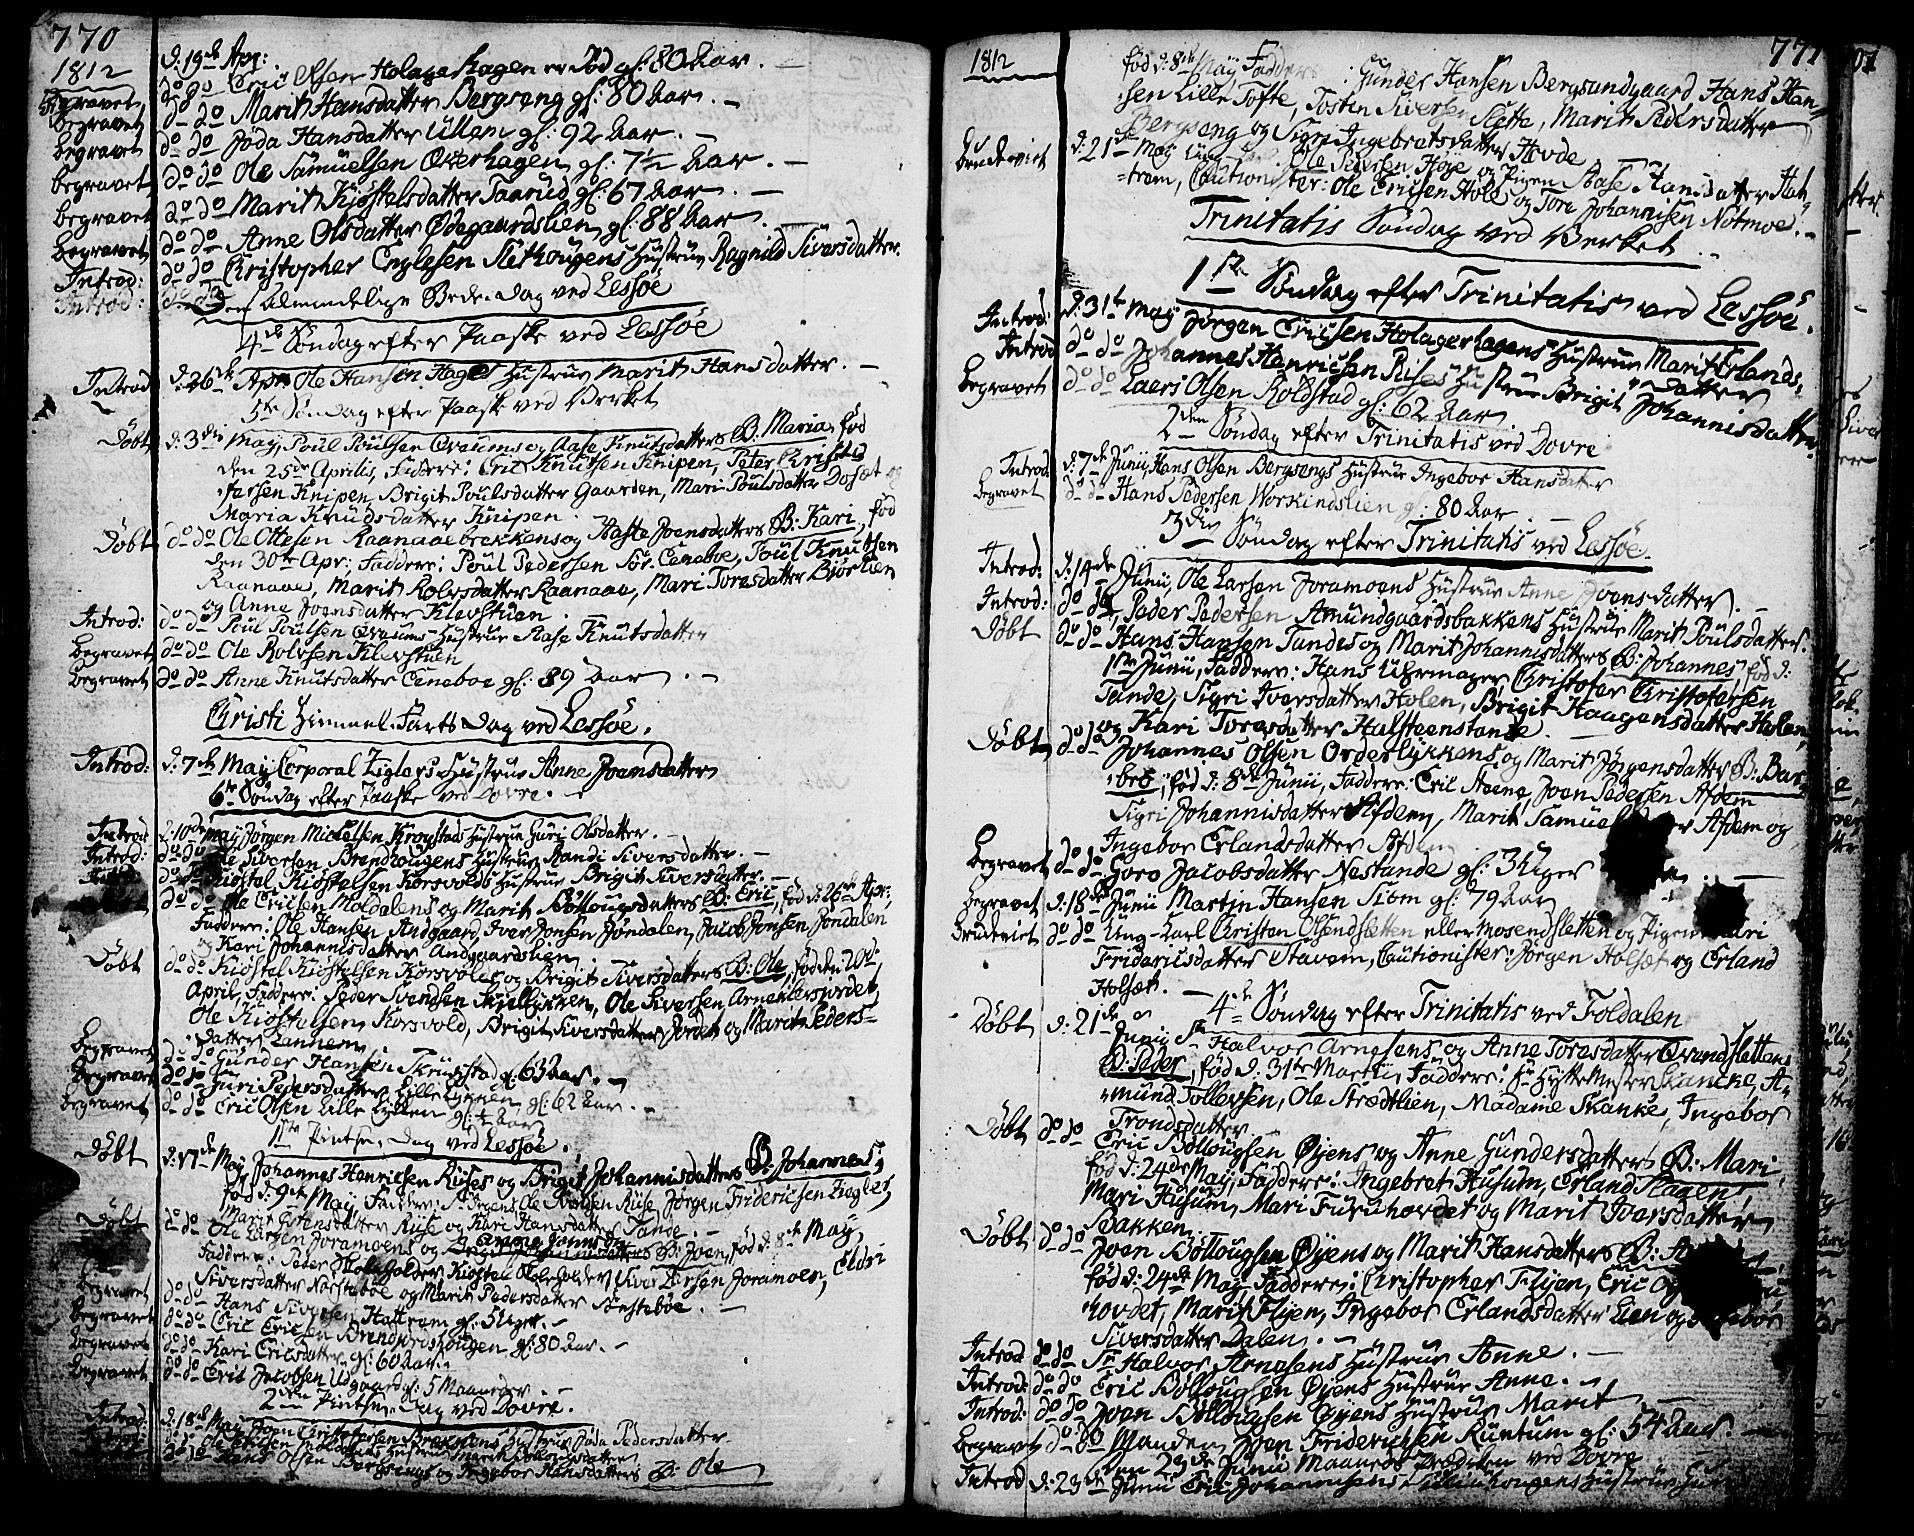 770
1812
d: 19de Apr:
Begravet d° d° Eric Olsen Holagerhagen gl: 80 Aar. –
Begravet d° d° Marit Hansdatter Bergseng gl: 80 Aar. –
Begravet d° d° Joda Hansdatter Ullen gl: 92 Aar. –
Begravet d° d° Ole Samuelsen Overhagen gl: 7½ Aar. –
Begravet d° d° Marit Kiøstelsdatter Taarud gl: 67 Aar. –
Begravet d° d° Anne Olsdatter Ødegaardslien gl: 88 Aar
Introd: d° d° Christopher Englesen Slethougens Hustrue Ragnild Siversdatter.
Introd:
Den Almindelige Bede-Dag ved Lessøe
4de Søndag efter Paaske ved Lessøe
Introd d: 26de Apr Ole Hansen Hages Hustrue Marit Hansdatter. –
5te Søndag efter Paaske ved Verket
Døbt d: 3die May, Poul Poulsen Qvaums og Aase Knutsdatters B: Maria, fød
den 25de Aprilis, Faddere: Eric Knutsen Knipen, Peter Christo-
fersen Knipen, Brigit Poulsdatter Gaarden, Mari Poulsdatter Dosæt og
Maria Knudsdatter Knipen.
Døbt d° d° Ole Ottesen Raanaaebrekkens og Joensdatters B: Kari, fød
den 30te Apr: Faddere: Poul Pedersen Sør. Ceneboe, Poul Knutsen
Raanaae, Marit Rolvsdatter Raanaae, Mari Toresdatter Bjorlien
og Anne Joensdatter Klevstuen.
Introd: d° d° Poul Poulsen Qvaums Hustrue Aase Knutsdatter
Begravet d° d° Ole Rolvsen Klevstuen
Begravet d° d° Anne Knutsdatter Ceneboe gl: 89 Aar. –
Christi Himmel-Farts Dag ved Lessøe.
Introd: d: 7de May Corporal Ziglers Hustrue Anne Joensdatter
6te Søndag efter Paaske ved Dovre.
Introd: d: 10de May Jørgen Mickelsen Krogstads Hustrue Guri Olsdatter. –
Introd: d° d° Ole Siversen Brendhougens Hustrue Randi Siversdatter. –
d° d° Kiøstel Kiøstelsen Korsvolds Hustrue Brigit Siversdatter. –
d° d° Ole Ericsen Moldalens og Marit Bøllougsdatters B: Eric, fød d: 26de Apr:
Faddere: Ole Hansen Andgaard, Iver Jonsen Jøndalen, Jacob Jonsen Jøndalen
og Kari Johannisdatter Andgaardslien.
Døbt d° d° Kiøstel Kiøstelsen Korsvolds og Brigit Siversdatters B: Ole, fød den 20de
April, Faddere: Peder Svendsen Kiellykken, Ole Siversen Arneklersjordet,
Ole Kiøstelsen Korsvold, Brigit Siversdatter Jordet og Marit Peders-
datter Lannem.
Begravet d° d° Gunder Hansen Skrugstad gl: 63 Aar. –
Begravet d° d° Guri Pedersdatter Lille Lykken gl: 62 Aar. –
Begravet d° d° Eric Olsen Lille Lykken gl: ½ Aar
1ste Pintse-Dag ved Lessøe.
Døbt d: 17de May, Johannes Henricsen Riises og Brigit Johannisdatters B: Johannes,
fød d: 9de May, Faddere: Ole Iversen Riise, Jørgen Fridericsen Ziegler,
Marit Johnsdatter Riise og Kari Hansdatter Tande. –
Døbt d° d° Ole Larsen Joramoens og Anne Joensdatters B: Joen, fød d: 8de May,
Faddere: Peder Skoleholder, Kiøsten Skoleholder, Larsen Joramoen, Eldri
Siversdatter Nørsteboe og Marit Pedersdatter Sønsteboe. –
Begravet d° d° Hans Siversen Hattrem gl: 5 Uger. –
Begravet d° d° Eric Ericsen Brendjordshougen gl: 80 Aar. –
Begravet d° d° Kari Ericsdatter gl: 60 Aar.
Begravet d° d° Eric Jacobsen Udgaard gl: 5 Maaneder. –
2den Pintse-Dag ved Dovre.
Introd: d: 18de May Joen Christofersen Brekkens Hustrue Joda Pedersdatter.
Introd: d° d° Ole Ericsen Moldalens Hustrue Marit Bøllougsdatter
d° d° Hans Olsen Bergsengs og Ingebor Hansdatters B: Ole
771
1812
fød d: 8de May Faddere: Gunder Hansen Bergsundgaard, Hans Han-
sen Lille Tofte, Tosten Siversen Slette, Marit Pedersdatter
Bergseng og Sigri Ingebretsdatter Hovde
Brudeviet d: 21de May Ole Pedersen Høye og Pigen Aase Hansdatter Hat-
trem, Cautionister: Ole Ericsen Hole og Tore Johannisen Notmoe. –
Trinitatis Søndag ved Verket
1ste Søndag efter Trinitatis ved Lessøe.
Introd: d: 31te May Jørgen Ericsen Holagerhagens Hustrue Marit Erlands-
datter
Introd d° d° Johannes Henricsen Riises Hustrue Brigit Johannisdatter
Begravet d° d° Laers Olsen Roldstad gl: 62 Aar
2den Søndag efter Trinitatis ved Dovre
Introd d: 7de Junii, Hans Olsen Bergsengs Hustrue Ingebor Hansdatter
Begravet d° d° Hans Pedersen Workindslien gl: 80 Aar. –
3die Søndag efter Trinitatis ved Lessøe.
Introd: d: 14de Junii, Ole Larsen Joramoens Hustrue Anne Joensdatter. –
Introd: d° d° Peder Pedersen Amundgaardsbakkens Hustrue Marit Poulsdatter.
Døbt d° d° Hans Hansen Tandes og Marit Johannisdatters B: Johannes, fød d:
1ste Junii, Faddere: Hans Uhrmager, Christofer Christofersen
Tande, Sigri Iversdatter Holen, Brigit Haagensdatter Holen,
og Kari Toresdatter Halsteenstande.
Døbt d° d° Johannes Olsen Orderlykkens og Marit Jørgensdatters B: Bar-
bro, fød d: 8de Junii, Faddere: Eric Aaene, Joen Pedersen Afdem
Sigri Johannisdatter Afdem, Marit Samuelsdatter Afdem og
Ingebor Erlandsdatter Afdem
Begravet d° d° Goro Jacobsdatter Nestande gl: 3 Uger
Begravet d: 18de Junii Martin Hansen Siom gl: 79 Aar
Brudeviet d° d° Ung-Karl Christen Olsen Sletten eller Mosensletten og Pigen Mari
Fridericsdatter Stavem, Cautionister: Jørgen Holset og Erland
Holset. –
4de Søndag efter Trinitatis ved Foldalen
Døbt d: 21de Junii Sr Halvor Arnesens og Anne Toresdatter Grundslettens
B: Peder, fød d: 31te Martii, Faddere: Sr HytteMester Skancke, A-
mund Tollevsen, Ole Strødtlien, Madame Skanke, Ingebor
Trondsdatter
Døbt d° d° Eric Bøllougsen Øyens og Anne Gundersdatters B: Mari,
fød d: 24de May, Faddere: Ingebret Husum, Erland Hagen,
Mari Husum, Mari Furuhovdet og Marit Ivarsdatter
Bakken
Døbt d° d° Joen Bøllougsen Øyens og Marit Hansdatters B:
fød d: 24de May, Faddere: Christopher Flyen, Eric
hovdet, Marit Flyen, Ingebor Erlandsdatter Lien og Ingebor
Siversdatter Dalen. –
Introd d° d° Sr Halvor Arnesens Hustrue Anne. –
Introd: d° d° Eric Bøllougsen Øyens Hustrue Anne. –
Introd: d° d° Joen Bøllougsen Øyens Hustrue Marit. –
Begravet d° d° Manden Joen Friderichsen Runtum gl: 54 Aar. –
Den 23de Junii Maaneds Prædiken ved Dovre
Introd d: 23de Junii Eric Johannisens Hustrue